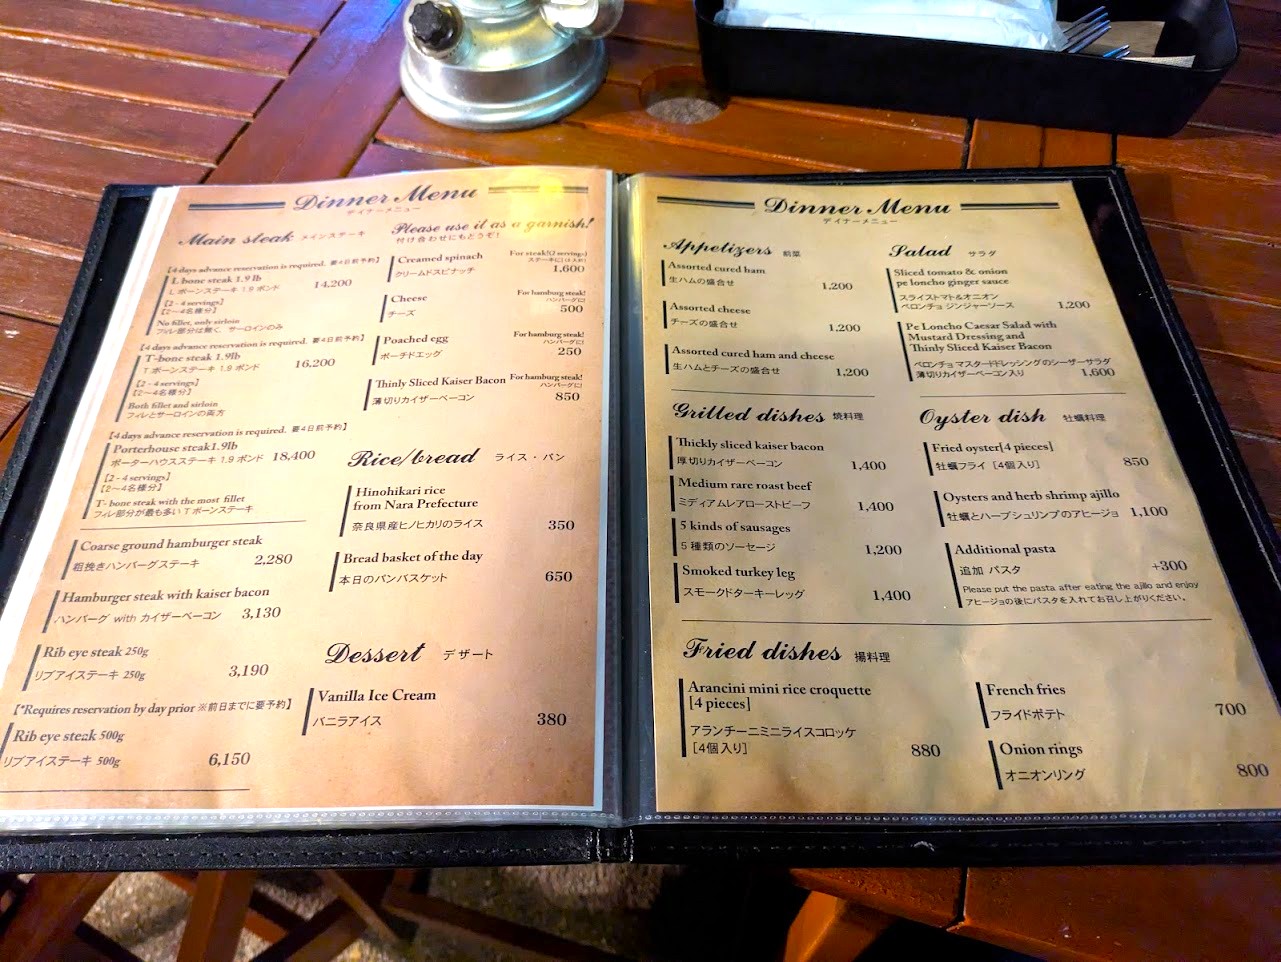 Dinner Menu
デイナーメニュー
Main steak メインステーキ
[4 days advance reservation is required. 要4日前予約]
L bone steak 1.9 lb
Lボーンステーキ 1.9ポンド 14,200
[2 - 4 servings]
[2〜4名様分]
No fillet, only sirloin
フィレ部分は無く、サーロインのみ
[4 days advance reservation is required. 要4日前予約]
T-bone steak 1.9lb
Tボーンステーキ 1.9ポンド 16,200
[2 - 4 servings]
[2〜4名様分]
Both fillet and sirloin
フィレとサーロインの両方
[4 days advance reservation is required. 要4日前予約]
Porterhouse steak1.9lb
ポーターハウスステーキ 1.9ポンド 18,400
[2 - 4 servings]
[2〜4名様分]
T- bone steak with the most fillet
フィレ部分が最も多いTボーンステーキ
Coarse ground hamburger steak
粗挽きハンバーグステーキ 2,280
Hamburger steak with kaiser bacon
ハンバーグ with カイザーベーコン 3,130
Rib eye steak 250g
リブアイステーキ 250g 3,190
[*Requires reservation by day prior ※前日までに要予約]
Rib eye steak 500g
リブアイステーキ 500g 6,150
Please use it as a garnish!
付け合わせにもどうぞ!
Creamed spinach For steak!(2 servings)
クリームドスピナッチ ステーキに(2人前)
1,600
Cheese For hamburg steak!
チーズ ハンバーグに
500
Poached egg For hamburg steak!
ポーチドエッグ ハンバーグに
250
Thinly Sliced Kaiser Bacon For hamburg steak!
薄切りカイザーベーコン ハンバーグに
850
Rice/bread ライス・パン
Hinohikari rice
from Nara Prefecture
奈良県産ヒノヒカリのライス 350
Bread basket of the day
本日のパンバスケット 650
Dessert デザート
Vanilla Ice Cream
バニラアイス 380
Dinner Menu
デイナーメニュー
Appetizers 前菜
Assorted cured ham
生ハムの盛合せ 1,200
Assorted cheese
チーズの盛合せ 1,200
Assorted cured ham and cheese
生ハムとチーズの盛合せ 1,200
Salad サラダ
Sliced tomato & onion
pe loncho ginger sauce
スライストマト&オニオン
ペロンチョ ジンジャーソース 1,200
Pe Loncho Caesar Salad with
Mustard Dressing and
Thinly Sliced Kaiser Bacon
ペロンチョ マスタードドレッシングのシーザーサラダ
薄切りカイザーベーコン入り 1,600
Grilled dishes 焼料理
Thickly sliced kaiser bacon
厚切りカイザーベーコン 1,400
Medium rare roast beef
ミディアムレアローストビーフ 1,400
5 kinds of sausages
5種類のソーセージ 1,200
Smoked turkey leg
スモークドターキーレッグ 1,400
Oyster dish 牡蠣料理
Fried oyster[4 pieces]
牡蠣フライ [4個入り] 850
Oysters and herb shrimp ajillo
牡蠣とハーブシュリンプのアヒージョ 1,100
Additional pasta
追加 パスタ +300
Please put the pasta after eating the ajillo and enjoy
アヒージョの後にパスタを入れてお召し上がりください。
Fried dishes 揚料理
Arancini mini rice croquette
[4 pieces]
アランチーニミニライスコロッケ
[4個入り] 880
French fries
フライドポテト 700
Onion rings
オニオンリング 800